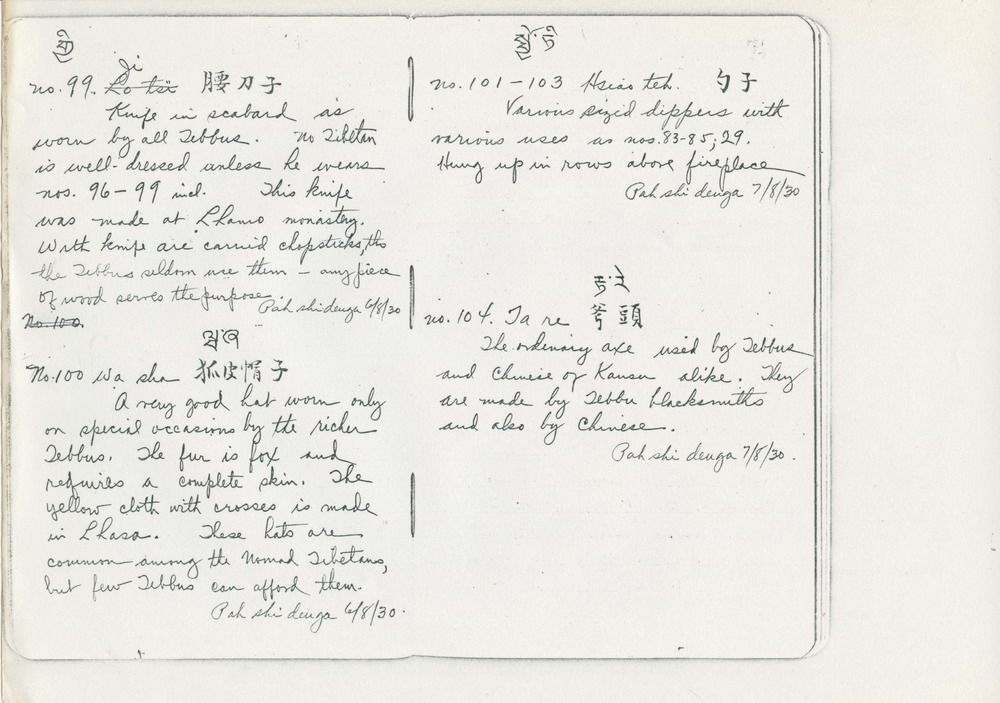 Ji
no. 99. Lo tsï 腰刀子
Knife in scabard as
worn by all Tebbus. No Tibetan
is well-dressed unless he wears
nos. 96-99 incl. This knife
was made at Lhamo monastery.
With knife are carried chopsticks, tho
the Tebbus seldom use them - any piece
of wood serves the purpose.
Pah shi denga 6/8/30
No. 100.
No. 100 Wa sha 狐皮帽子
A very good hat worn only
on special occasions by the richer
Tebbus. The fur is fox and
requires a complete skin. The
yellow cloth with crosses is made
in Lhasa. These hats are
common among the Nomad Tibetans,
but few Tebbus can afford them.
Pah shi denga 6/8/30.
no. 101-103 Hsiao teh. 勺子
Various sized dippers with
various uses as nos. 83-85, 29.
Hung up in rows above fireplace
Pah shi denga 7/8/30
no. 104. Ta re 斧頭
The ordinary axe used by Tebbus
and Chinese of Kansu alike. They
are made by Tebbu blacksmiths
and also by Chinese.
Pah shi denga 7/8/30.